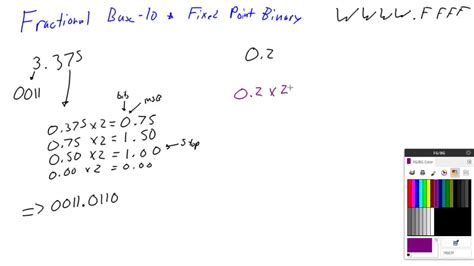 Fractional Base-10 & Fixed Point Binary
WWWW.FFFF
3.375
0011
bit
msb
0.375 x 2 = 0.75
0.75 x 2 = 1.50
0.50 x 2 = 1.00
stop
0.00 x 2 = 0.00
=> 0011.0110
0.2
0.2 x 2
FG/BG